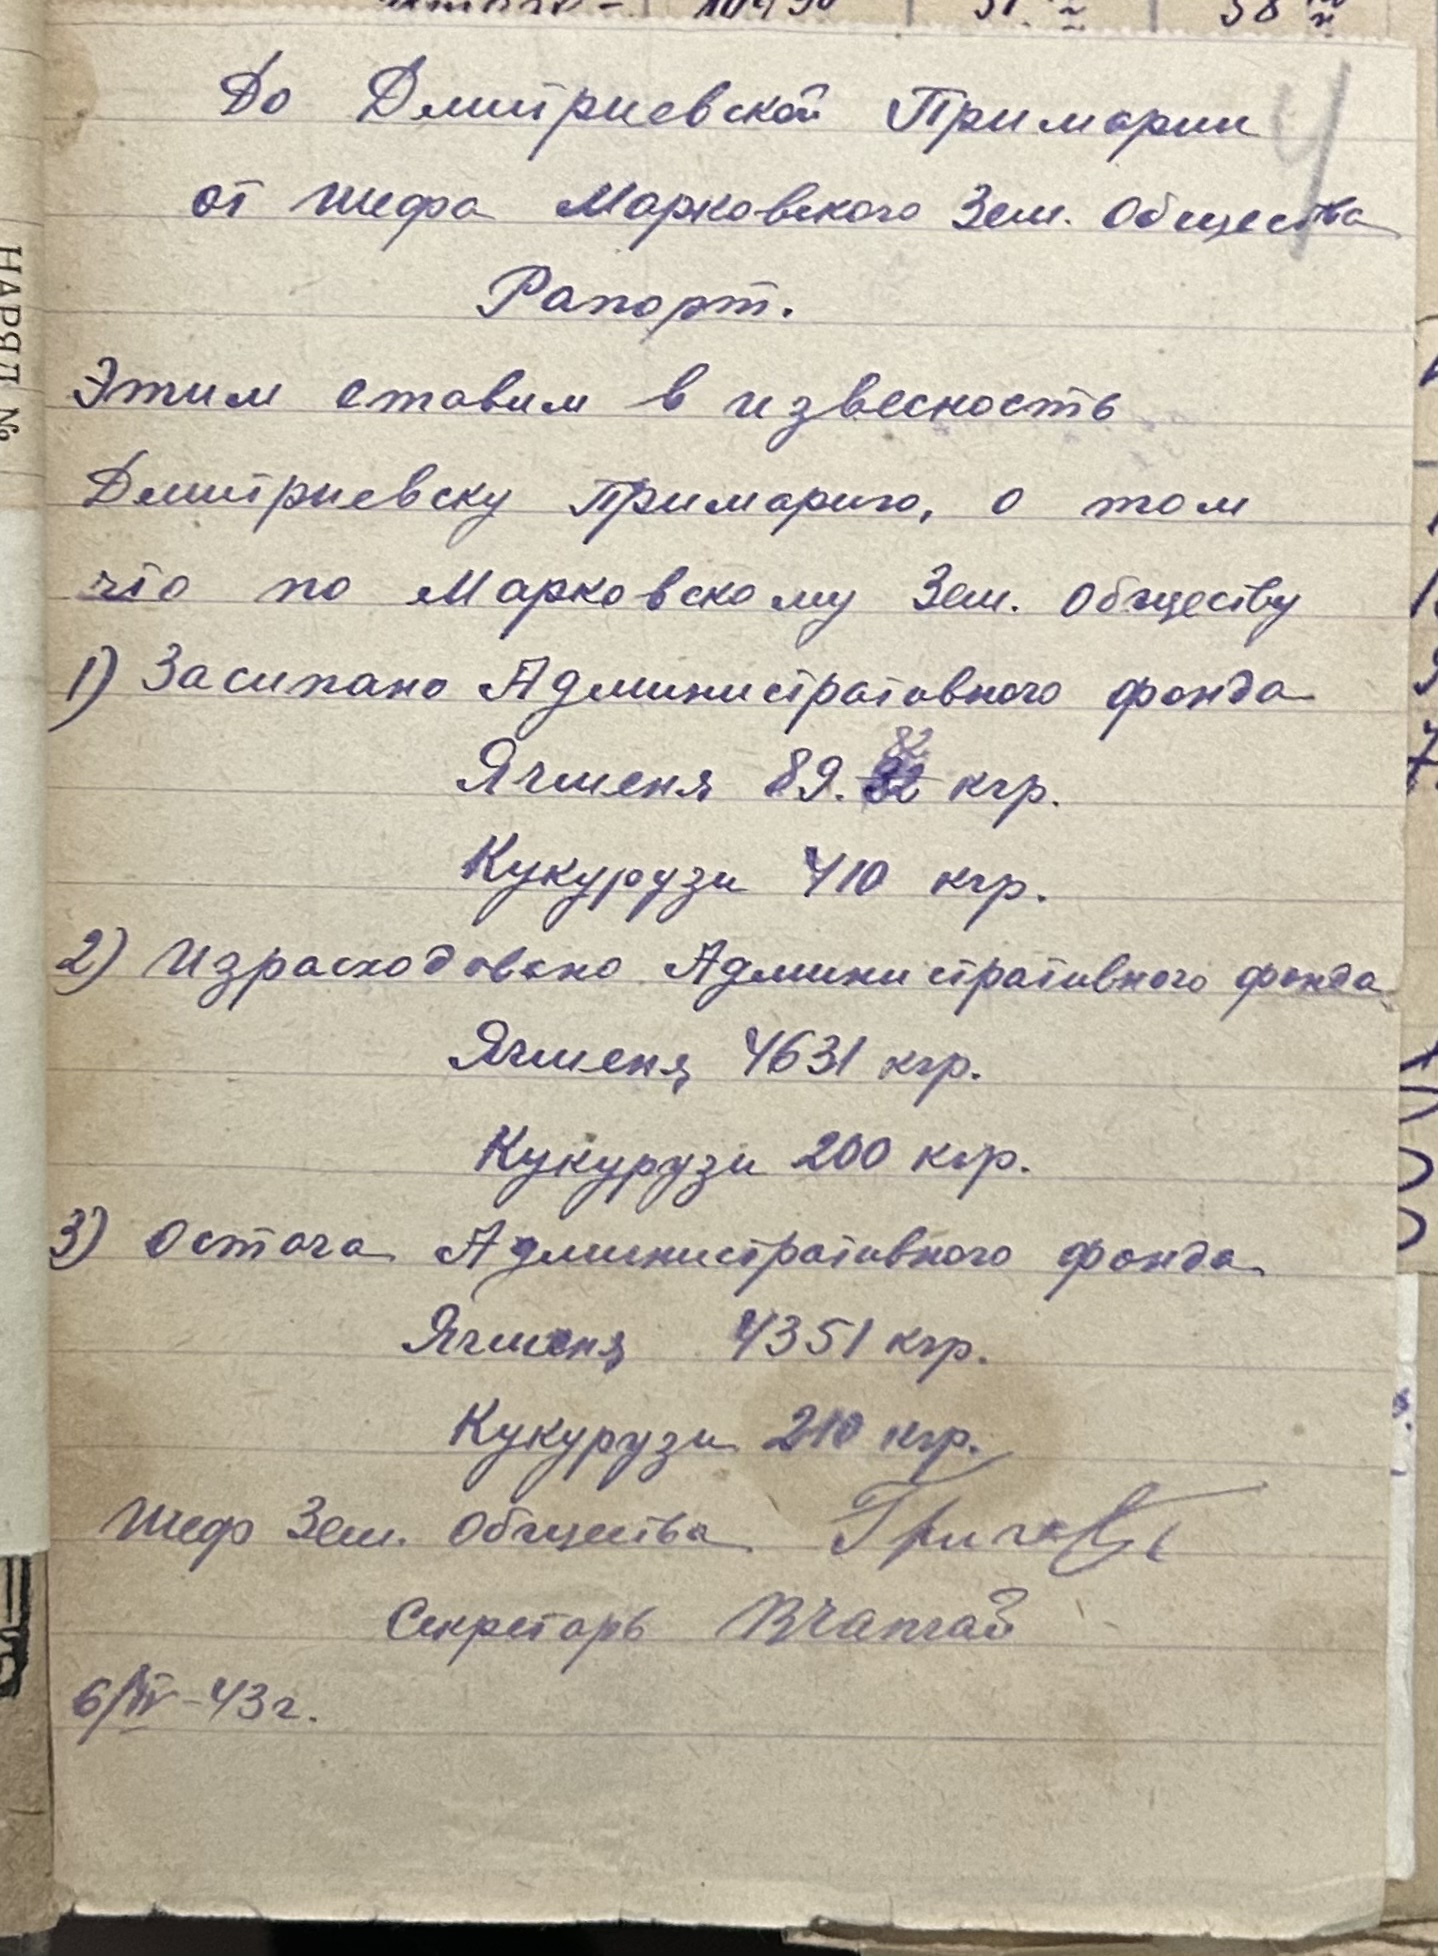 До Дмитриевской Примарии
от шефа Марковского Зем. Общества
Рапорт.
Этим ставим в извесность
Дмитриевску Примарию, о том
что по Марковскому Зем. Обществу
1) Засипано Административного фонда
82
Ячменя 89. кгр.
Кукурузи 410 кгр.
2) Израсходовано Административного фонда
Ячменя 4631 кгр.
Кукурузи 200 кгр.
3) Остача Административного фонда
Ячменя 4351 кгр.
Кукурузи 210 кгр.
Шеф Зем. Общества
Секретарь
6/IV-43г.
4
НАРЯД №